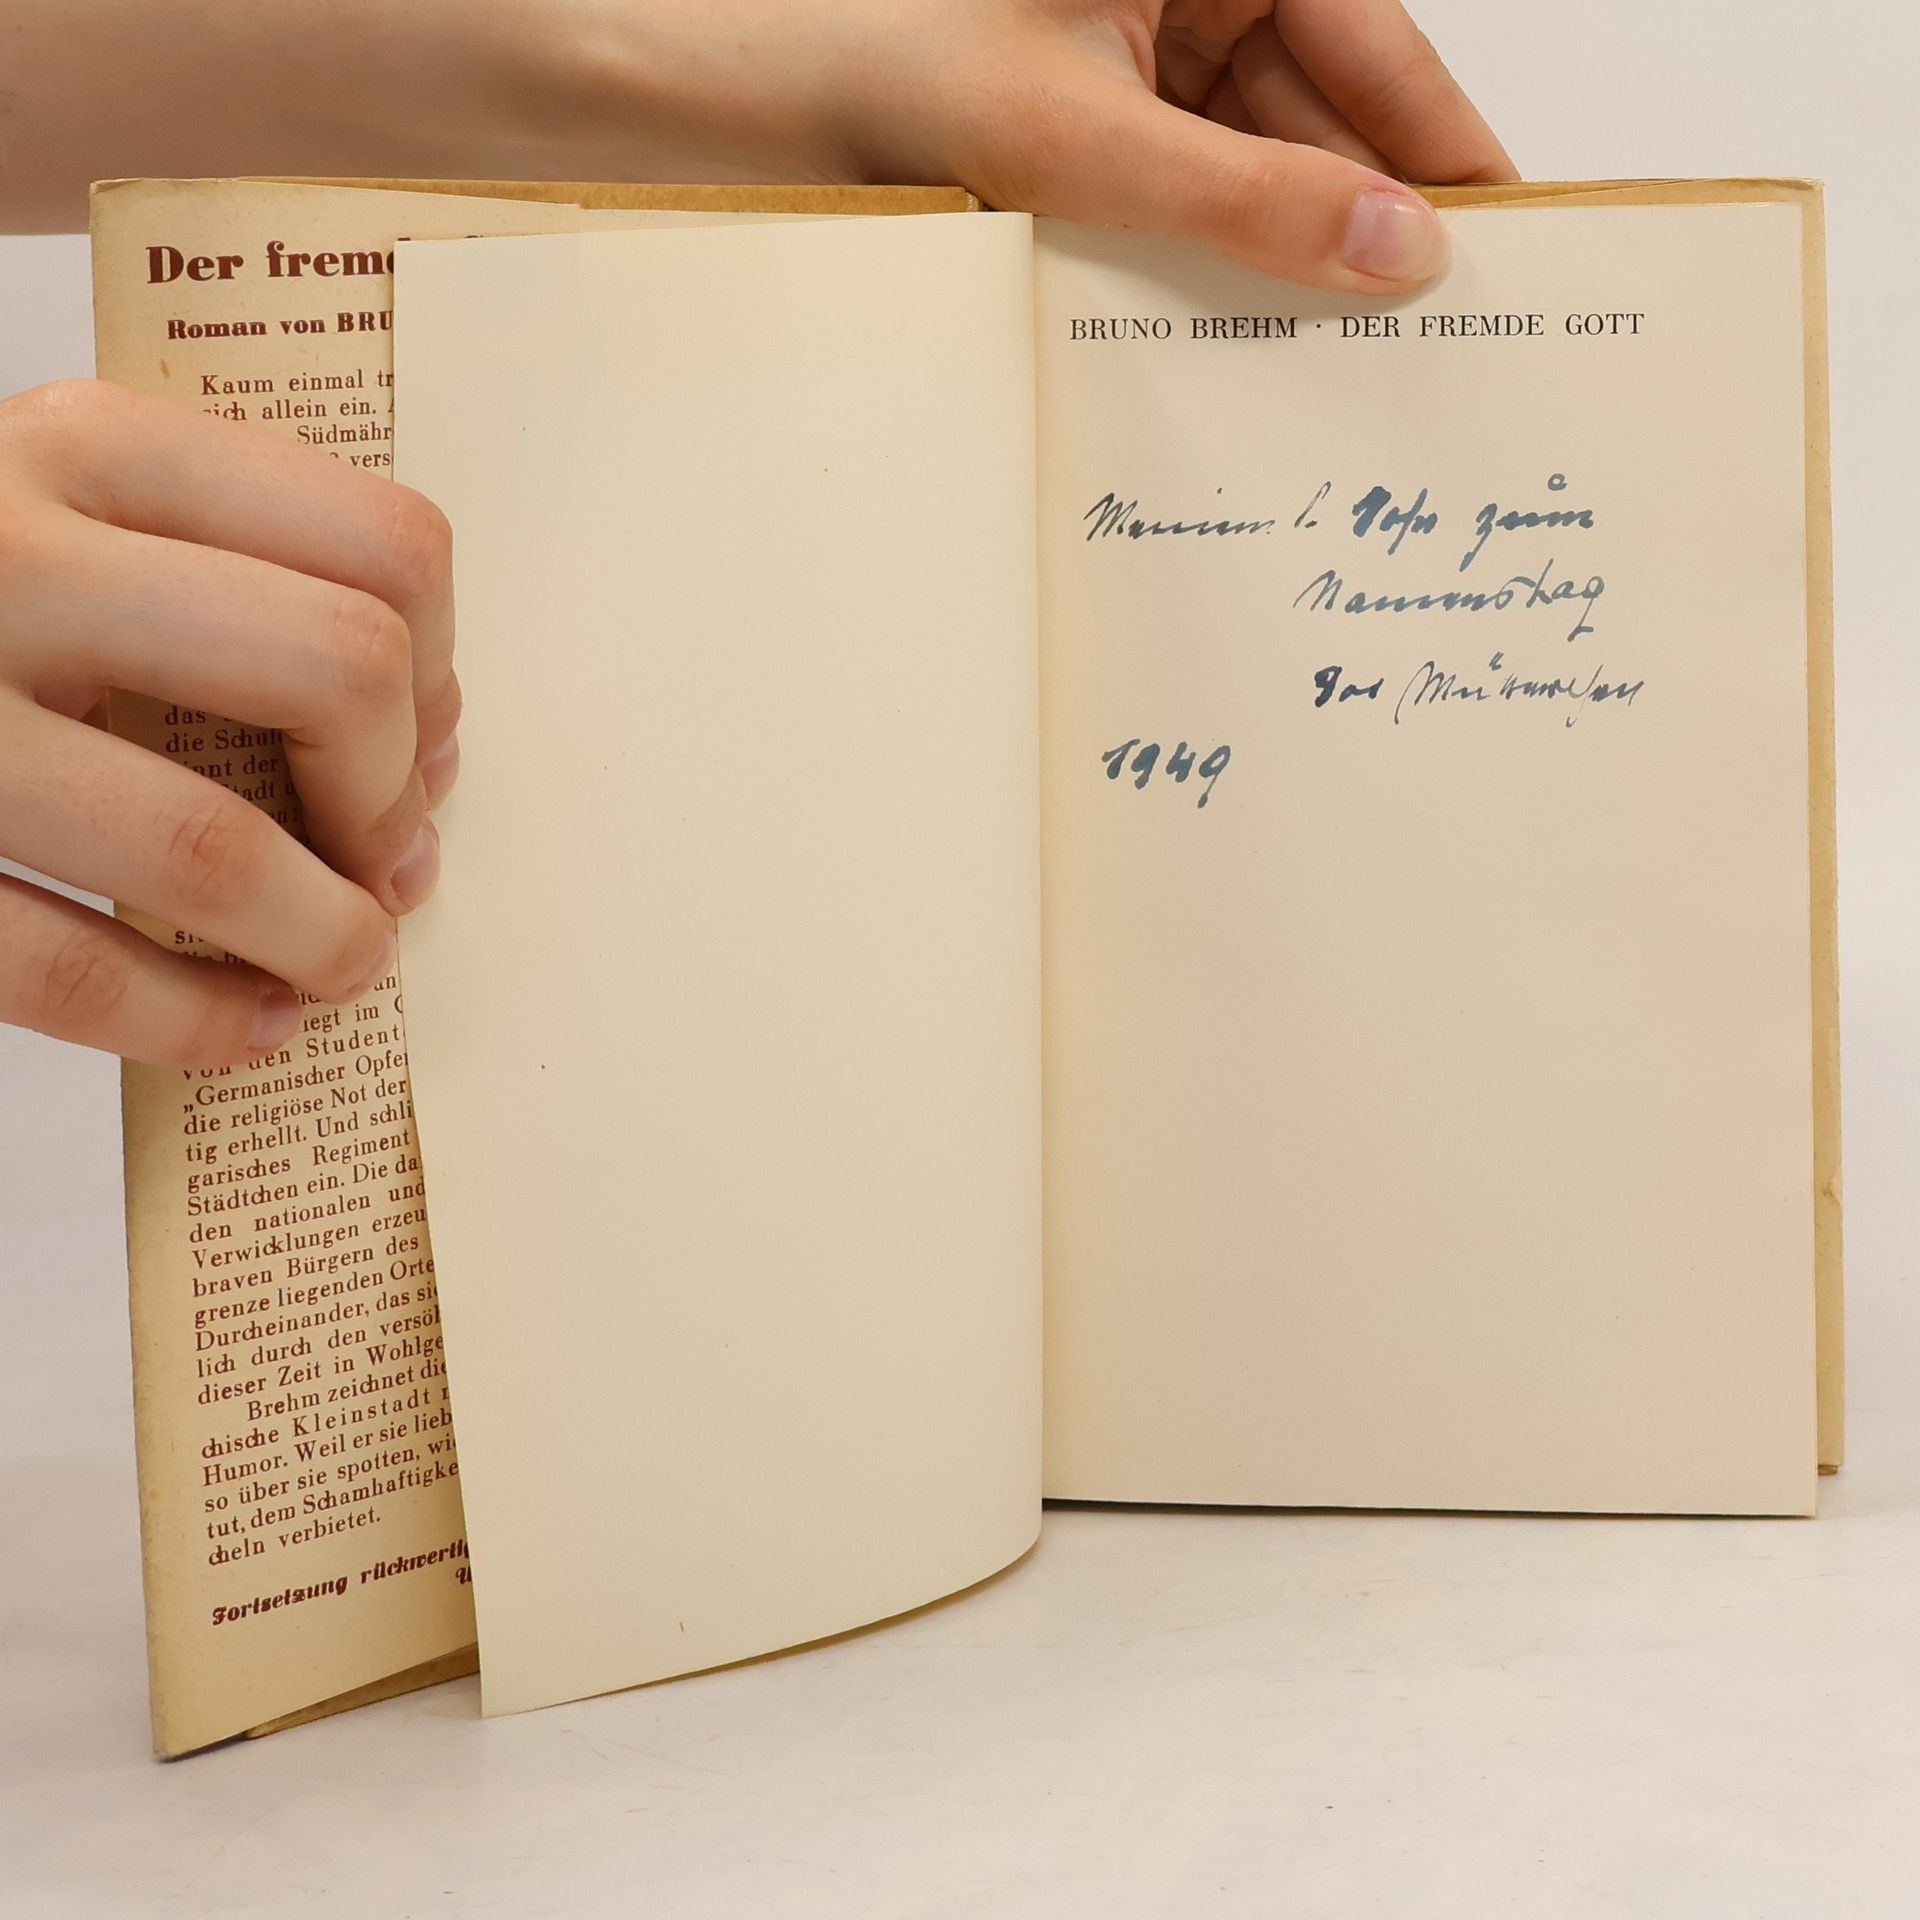 Der fremde
Roman von BRU
Kaum einmal tr
sich allein ein. A
Südmähr
vers
das
die Schul
innt der
Stadt u
en:
legt im G
Von den Student
„Germanischer Opfer
die religiöse Not der
tig erhellt. Und schli
garisches Regiment
Städtchen ein. Die da
den nationalen und
Verwicklungen erzeu
braven Bürgern des
grenze liegenden Orte
Durcheinander, das sie
lich durch den versöh
dieser Zeit in Wohlge
Brehm zeichnet die
chische Kleinstadt
Humor. Weil er sie lieb
so über sie spotten, wie
tut, dem Schamhaftigke
cheln verbietet.
Fortsetzung rückwertig
BRUNO BREHM · DER FREMDE GOTT
zum
Namenstag
1949